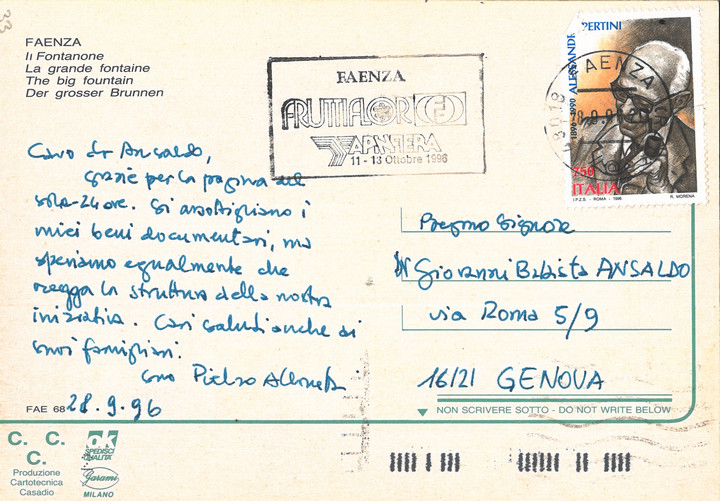 FAENZA
Il Fontanone
La grande fontaine
The big fountain
Der grosser Brunnen
FAENZA
FRUTTIFLOR
APIMFIERA
11 - 13 Ottobre 1996
ALESSANDR PERTINI
1896-1990
750
ITALIA
I.P.Z.S. - ROMA - 1996
R. MORENA
FAENZA
48018
Caro dr Ansaldo,
grazie per la pagina del
sole-24 ore. Si assottigliano i
miei beni documentari, ma
speriamo egualmente che
regga la struttura della nostra
iniziativa. Cari saluti anche ai
suoi famigliari.
suo Pietro
28.9.96
FAE 68
Pregmo Signore
Dr Giovanni Battista ANSALDO
via Roma 5/9
16121 GENOVA
NON SCRIVERE SOTTO - DO NOT WRITE BELOW
C. C.
C.
Produzione
Cartotecnica
Casadio
ok
SPEDISCI
QUALITA'
Garami
MILANO